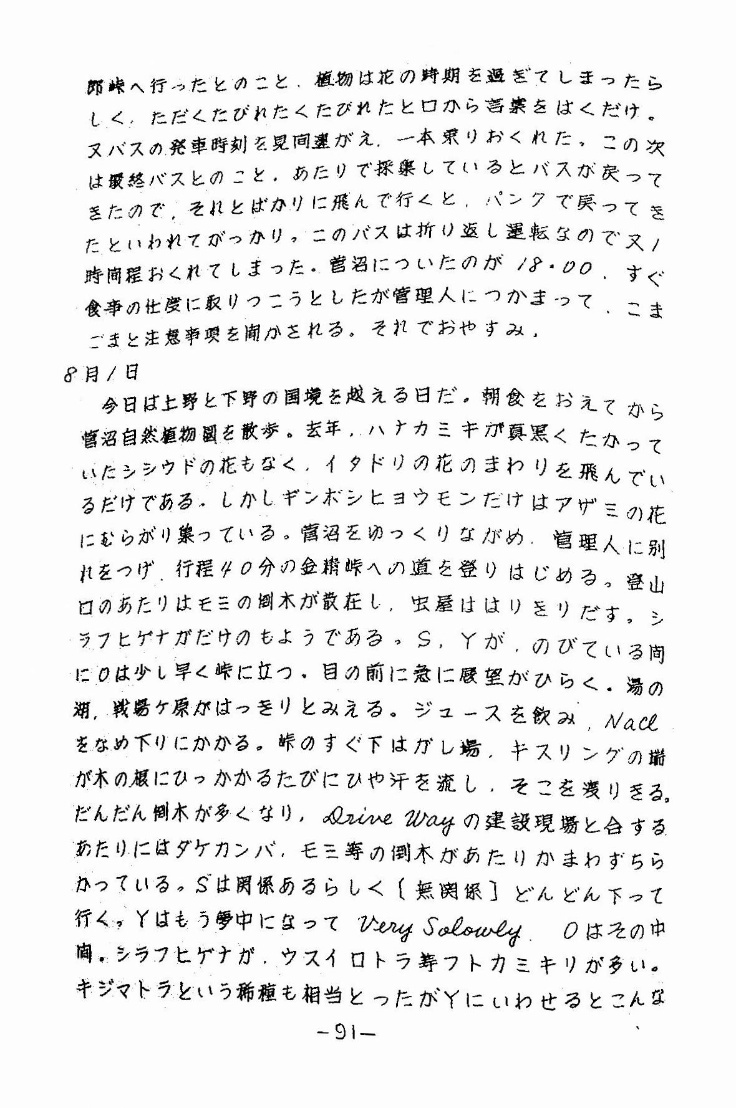 郎峠へ行ったとのこと．植物は花の時期を過ぎてしまったら
しく，ただくたびれたくたびれたと口から言葉をはくだけ。
又バスの発車時刻を見間違がえ，一本乗りおくれた。この次
は最終バスとのこと．あたりで採集しているとバスが戻って
きたので，それとばかりに飛んで行くと，パンクで戻ってき
たといわれてがっかり。このバスは折り返し運転なので又1
時間程おくれてしまった．菅沼についたのが18・00．すぐ
食事の仕度に取りつこうとしたが管理人につかまって．こま
ごまと注意事項を聞かされる。それでおやすみ．
8月1日
今日は上野と下野の国境を越える日だ。朝食をおえてから
菅沼自然植物園を散歩。去年，ハナカミキが真黒くたかって
いたシシウドの花もなく，イタドリの花のまわりを飛んでい
るだけである．しかしギンボシヒヨウモンだけはアザミの花
にむらがり集っている。菅沼をゆっくりながめ．管理人に別
れをつげ．行程40分の金精峠への道を登りはじめる。登山
口のあたりはモミの倒木が散在し，虫屋ははりきりだす。シ
ラフヒゲナガだけのもようである。S，Yが，のびている間
にOは少し早く峠に立つ．目の前に急に展望がひらく．湯の
湖，戦場ケ原がはっきりとみえる。ジュースを飲み，Nacl
をなめ下りにかかる。峠のすぐ下はガレ場，キスリングの端
が木の根にひっかかるたびにひや汗を流し，そこを渡りきる。
だんだん倒木が多くなり，Drive Wayの建設現場と合する
あたりにはダケカンバ，モミ等の倒木があたりかまわずちら
かっている。Sは関係あるらしく〔無関係〕どんどん下って
行く。Yはもう夢中になって Very Solowly．Oはその中
間．シラフヒゲナガ．ウスイロトラ等フトカミキリが多い。
キジマトラという稀種も相当とったがYにいわせるとこんな
－91－